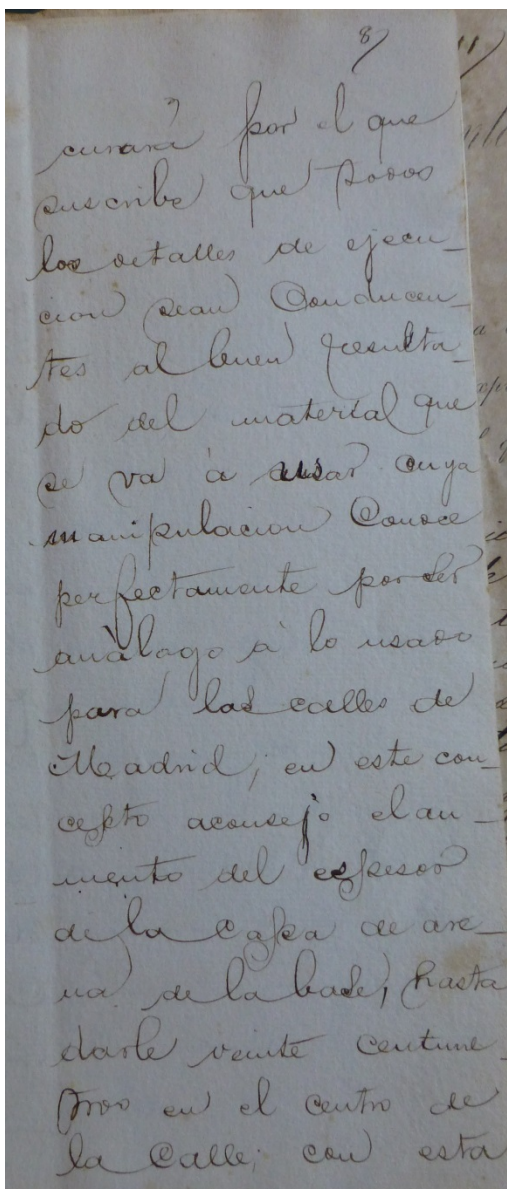 8
curará por el que
suscribe que todos
los detalles de ejecu-
cion sean Conducen-
tes al buen resulta-
do del material que
se va á usar cuya
manipulacion Conoce
perfectamente por ser
análogo á lo usado
para las calles de
Madrid; en este con-
cepto aconsejo el au-
mento del espesor
de la Capa de are-
na de la base, hasta
darle veinte centime-
tros en el centro de
la Calle; con esta